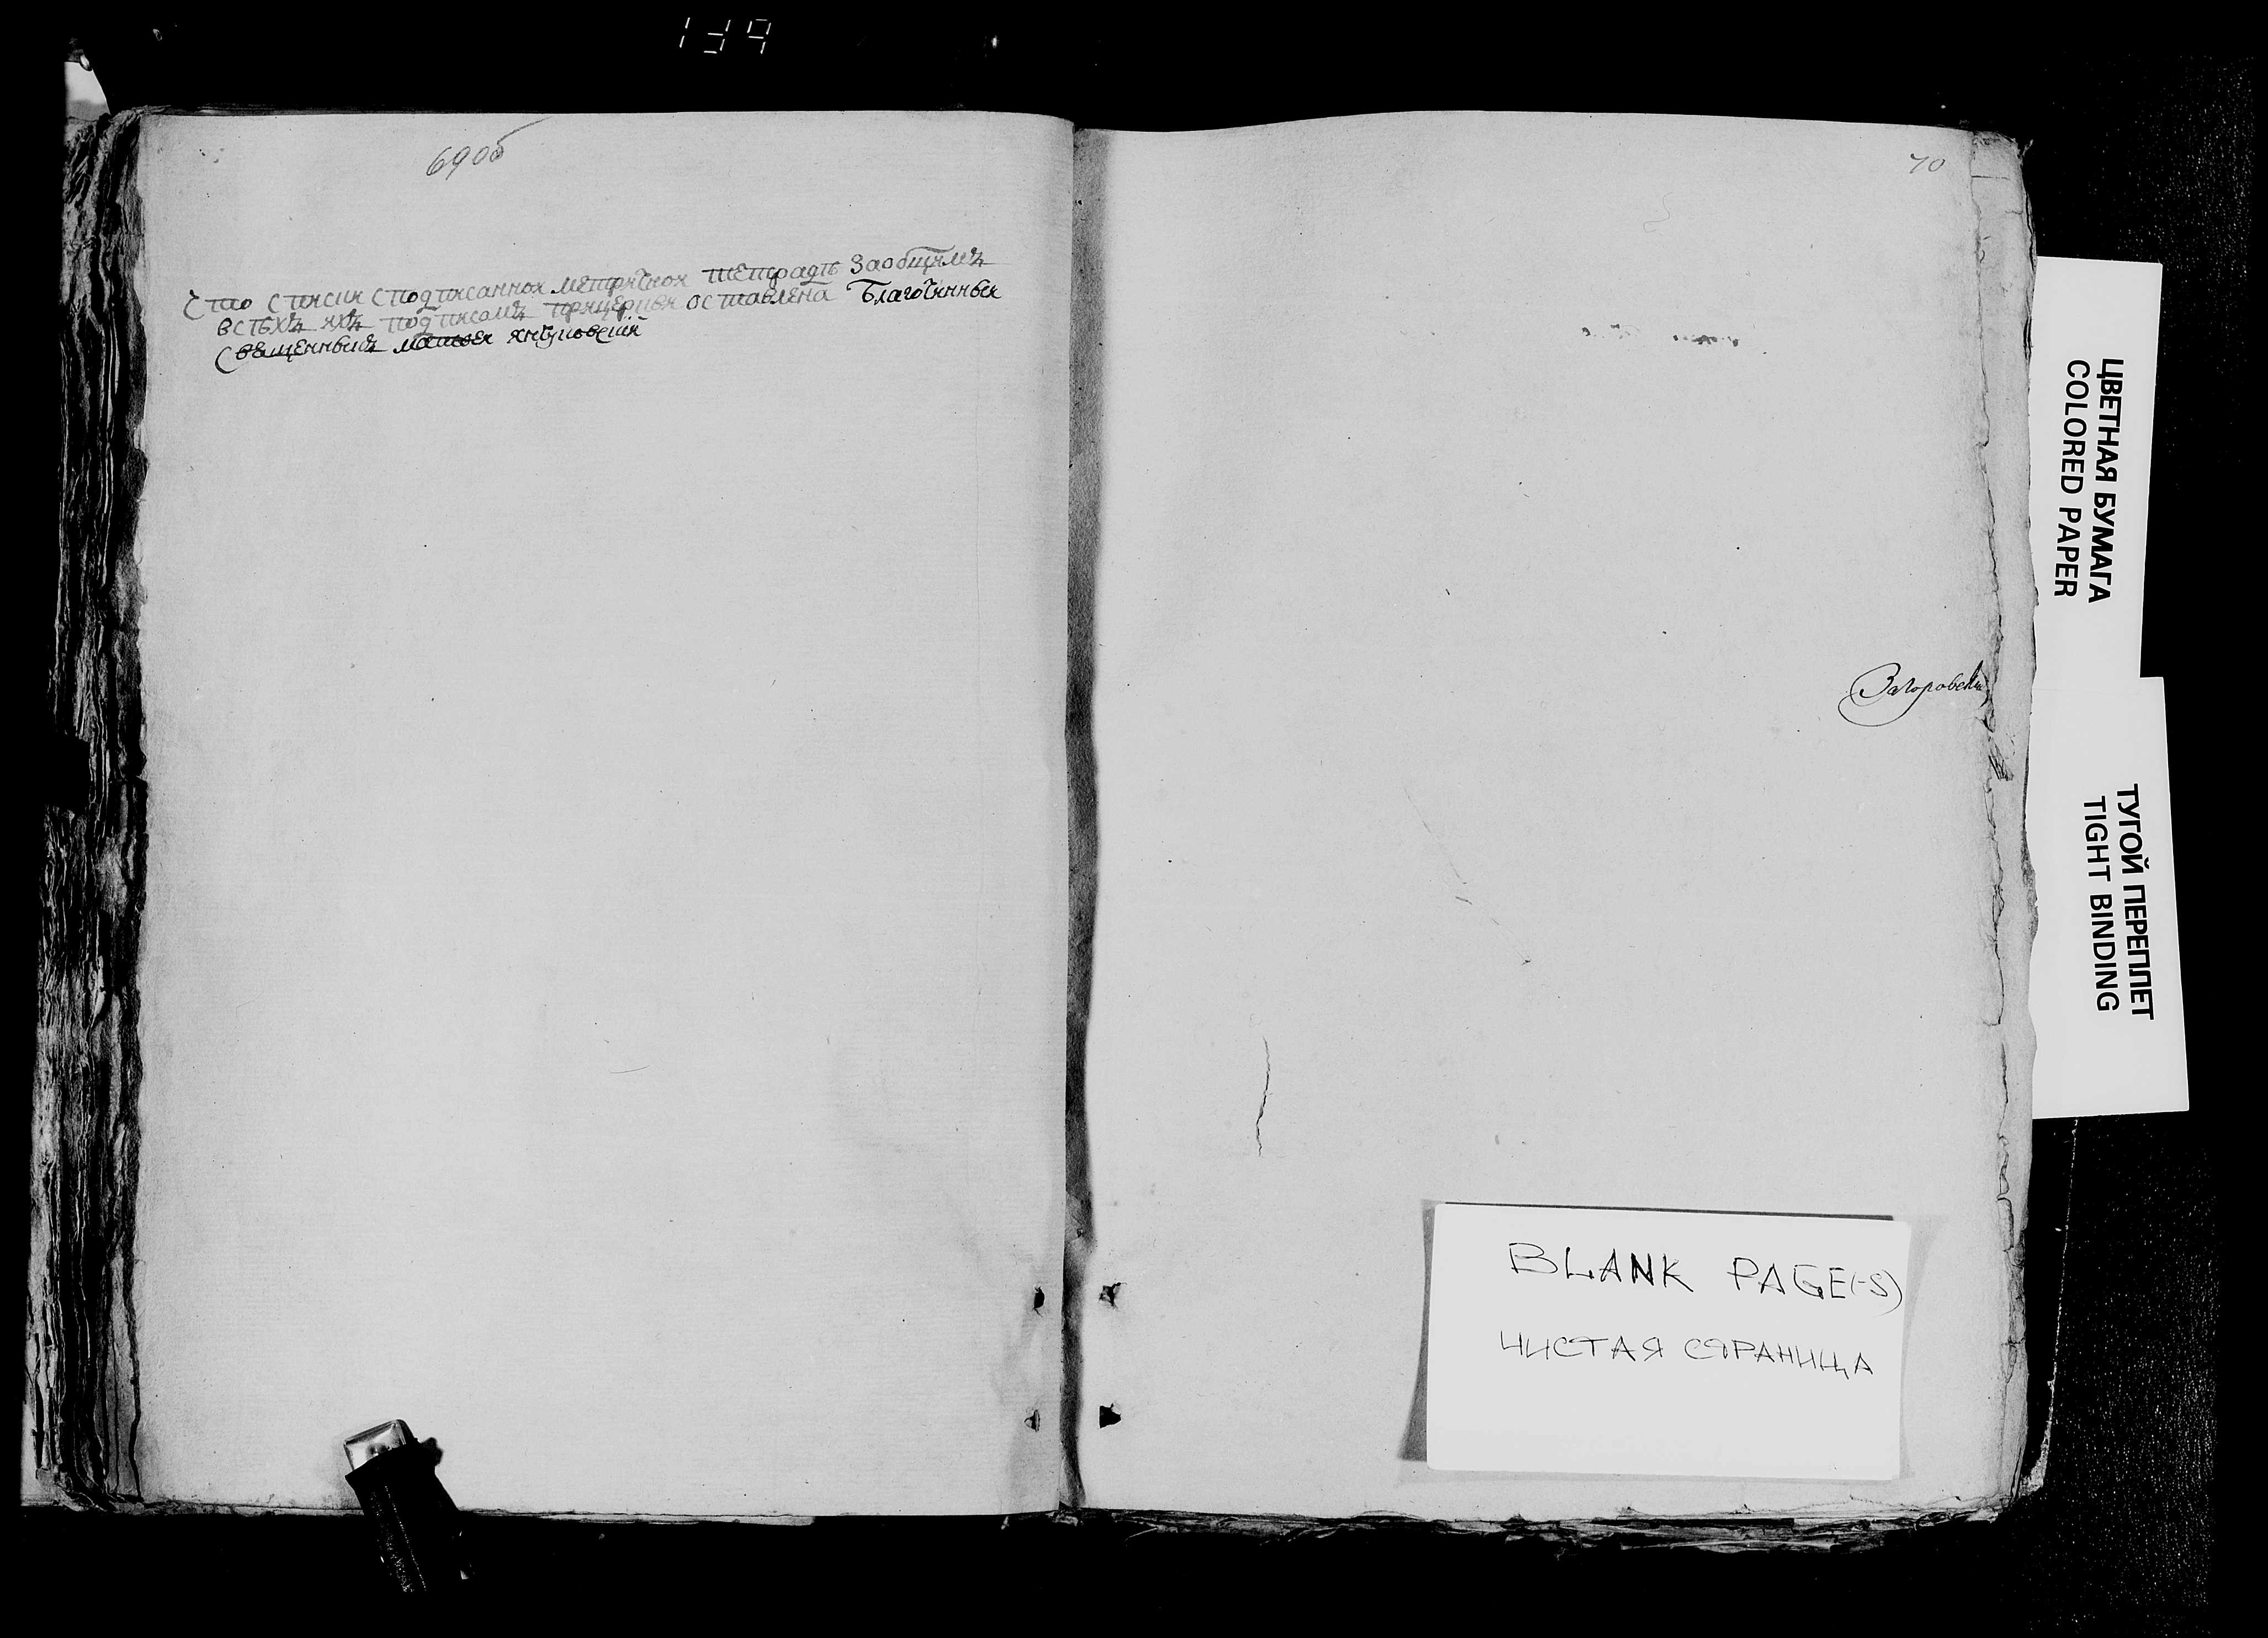 69об
Что списик сподписанной метричной тетради Заобщимъ
всѣхъ ихъ подписомъ прицеркви оставлена Благочинный
Священникъ янковский
70
Загоровский
ЦВЕТНАЯ БУМАГА
COLORED PAPER
ТУГОЙ ПЕРЕПЛЕТ
TIGHT BINDING
BLANK PAGE(-S)
ЧИСТАЯ СТРАНИЦА